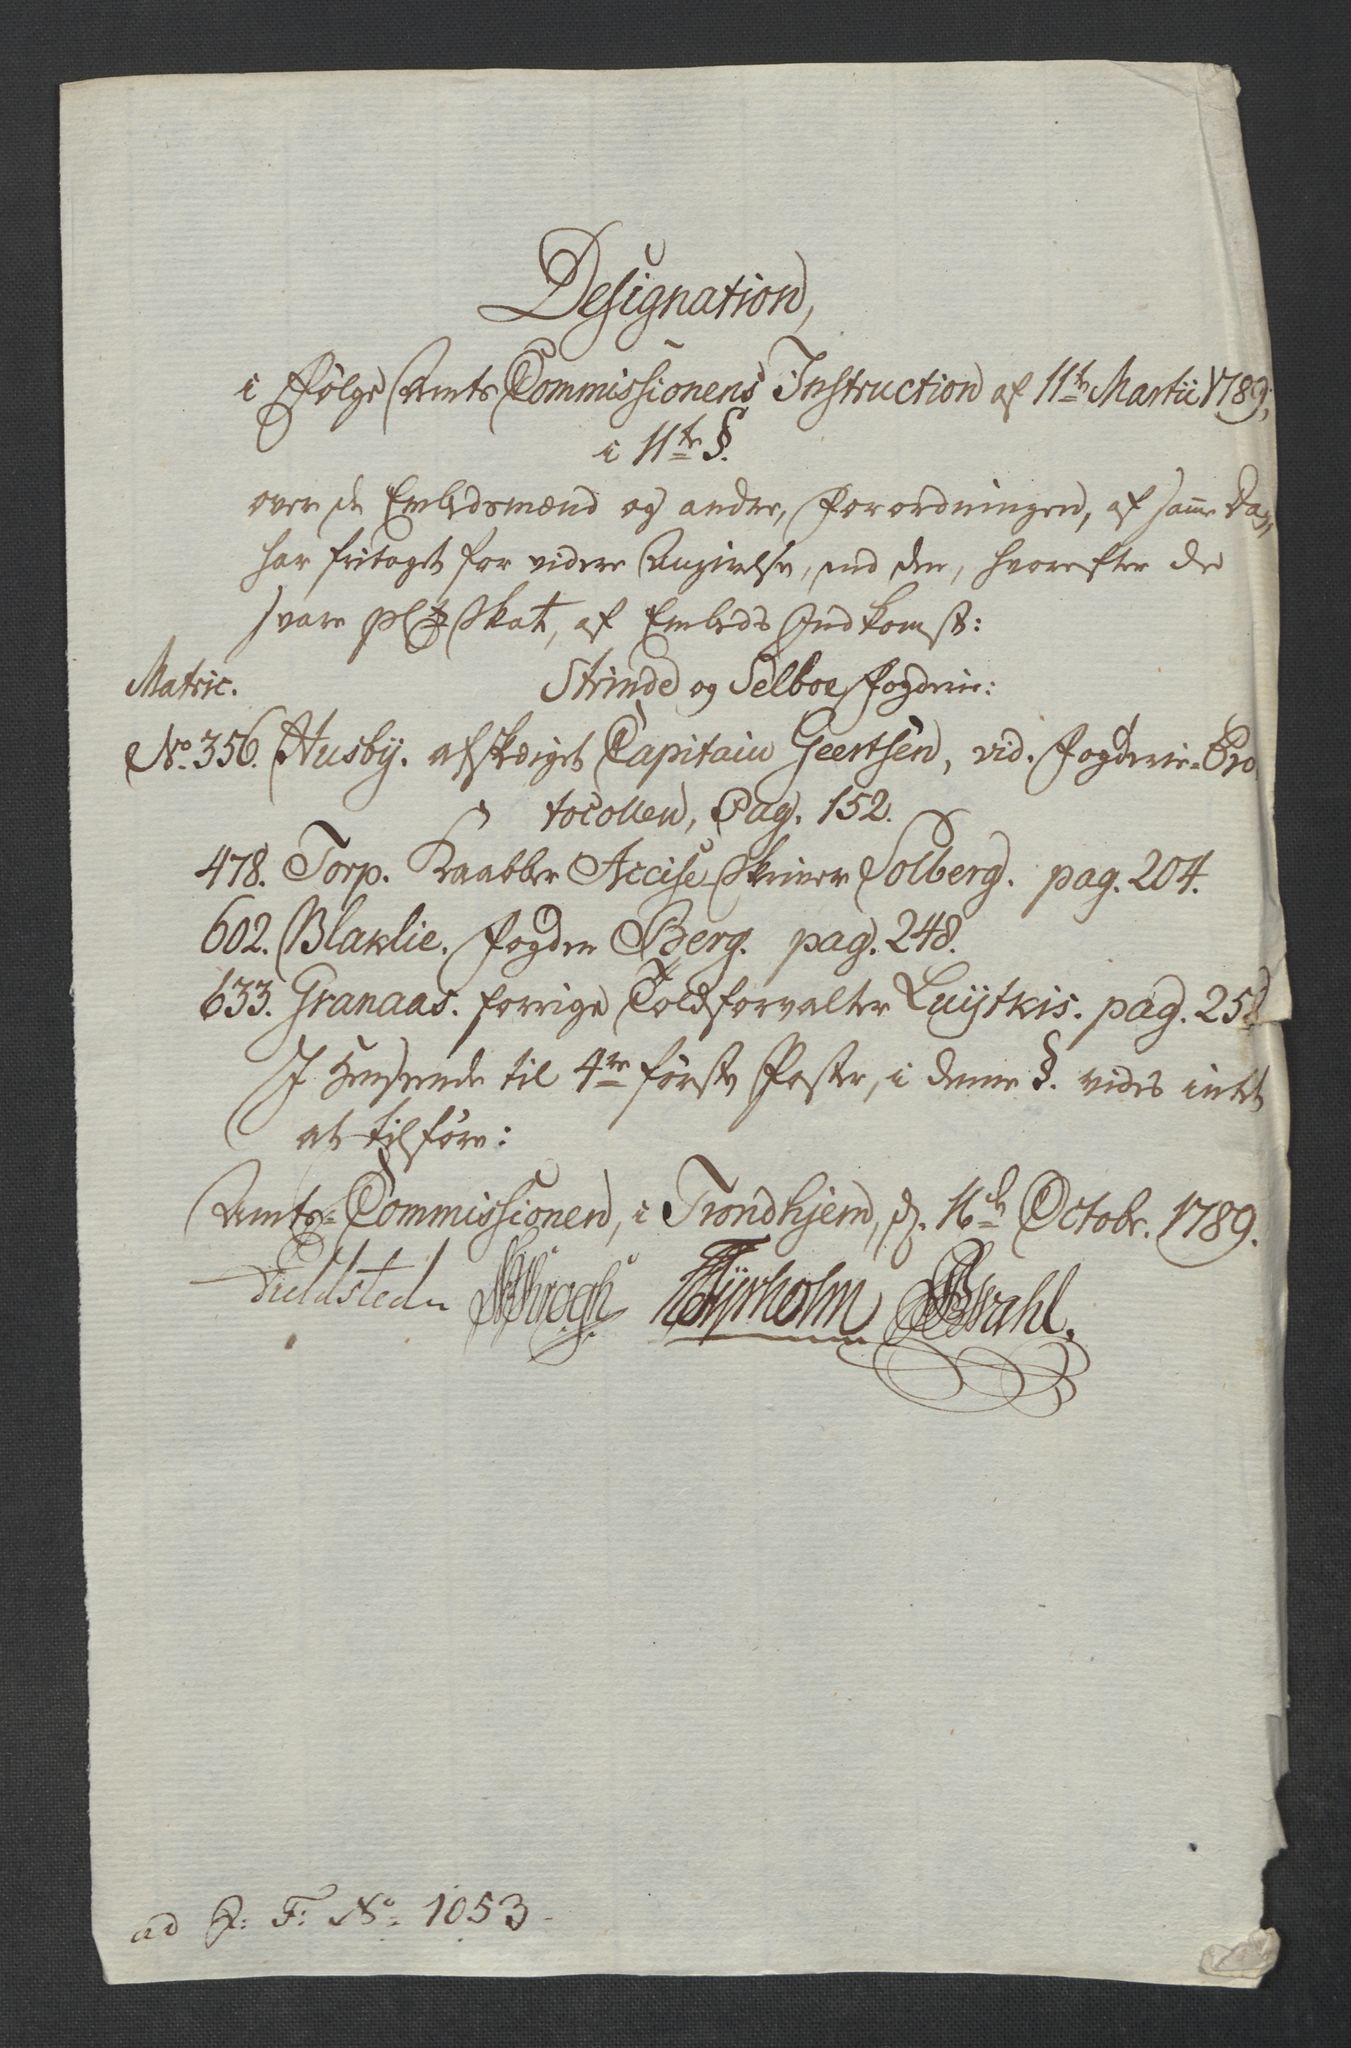 Designation,
i Følge Amts Commissionens Instruction af 11te Martii 1789,
i 11te §.
over de Embedsmænd og andre, Forordningen, af samme Dag,
har fritaget for videre Angivelse, end den, hvorefter de
svare Skat, af Embeds Indkomst:
Matric. Strinde og Selboe Fogderie:
No. 356. Husbÿ. afskediget Capitain Geertsen, vid. Fogderie-Pro
tocollen, Pag. 152.
478. Torp. Accise Skriver Solberg. pag. 204.
602. Blaklie. Fogden Berg. pag. 248.
633. Granaas. forrige Toldforvalter Luÿtkis. pag. 25
I Henseende til 4re første Poster, i denne §. vides intet
at tilføre:
Amts-Commissionen, i Trondhjem, d. 16de Octobr. 1789.
Fieldsted Kragh Tÿrholm Wahl.
ad F: No. 1053